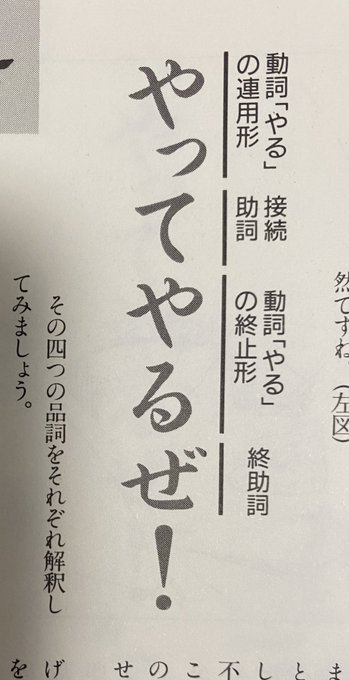 然ですね。(左図)
動詞「やる」
の連用形
接続
助詞
動詞「やる」
の終止形
終助詞
やってやるぜ!
その四つの品詞をそれぞれ解釈し
てみましょう。
ま
と
し
不
こ
の
せ
げ
を